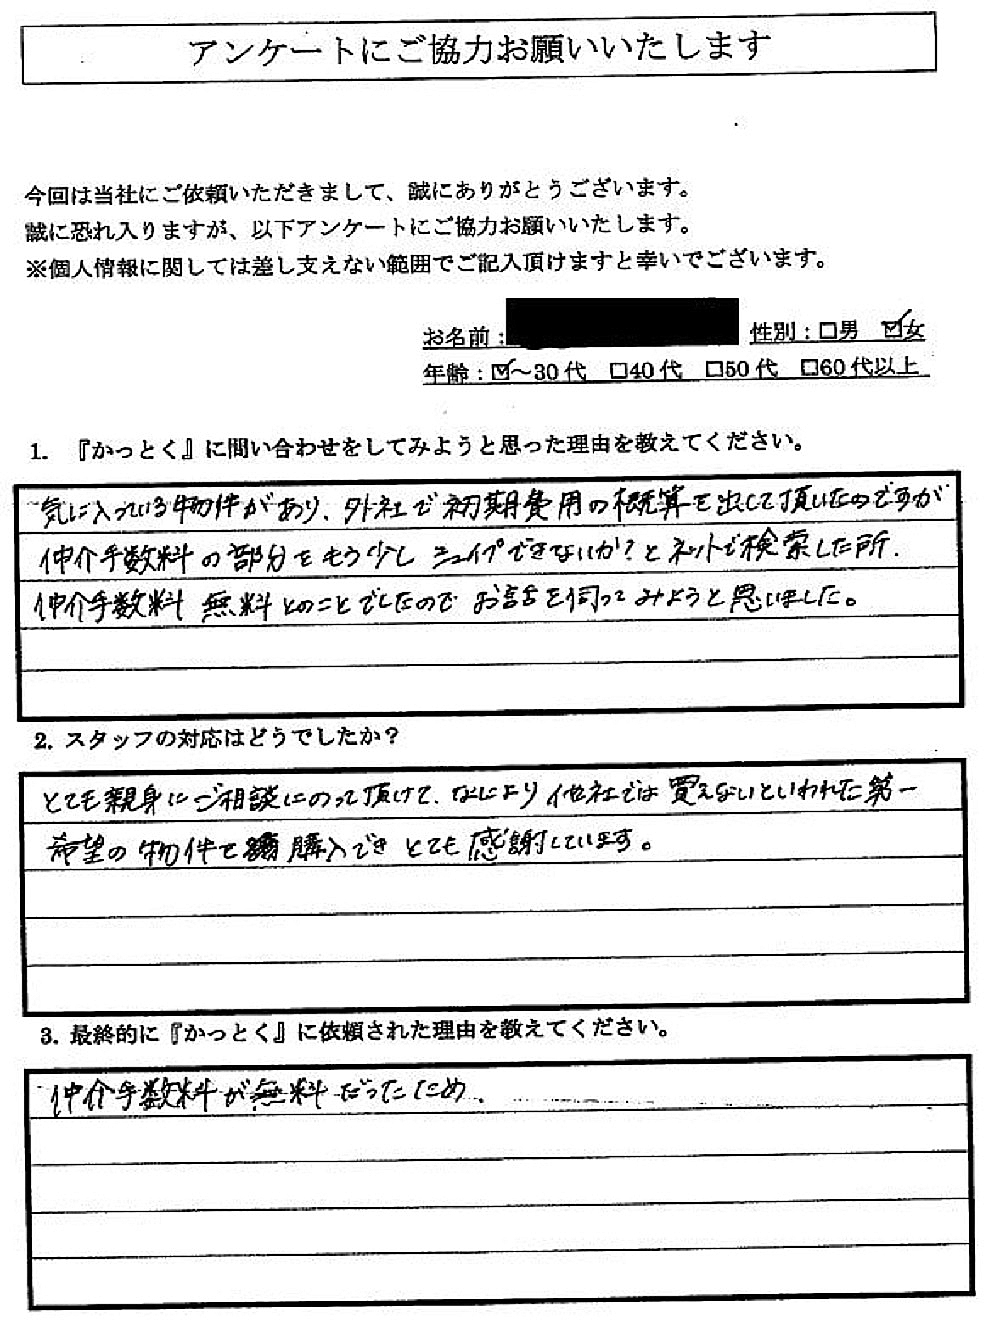 アンケートにご協力お願いいたします
今回は当社にご依頼いただきまして、誠にありがとうございます。
誠に恐れ入りますが、以下アンケートにご協力お願いいたします。
※個人情報に関しては差し支えない範囲でご記入頂けますと幸いでございます。
お名前： 性別：□男 ☑女
年齢：☑～30代 □40代 □50代 □60代以上
1. 『かっとく』に問い合わせをしてみようと思った理由を教えてください。
気に入っている物件があり、外社で初期費用の概算を出して頂いたのですが
仲介手数料の部分をもう少し シェイプできないか？とネットで検索した所、
仲介手数料 無料とのことでしたので お話を伺ってみようと思いました。
2. スタッフの対応はどうでしたか？
とても親身にご相談にのって頂けて、なにより他社では買えないといわれた第一
希望の物件を購入でき とても感謝しています。
3. 最終的に『かっとく』に依頼された理由を教えてください。
仲介手数料が無料だったため、